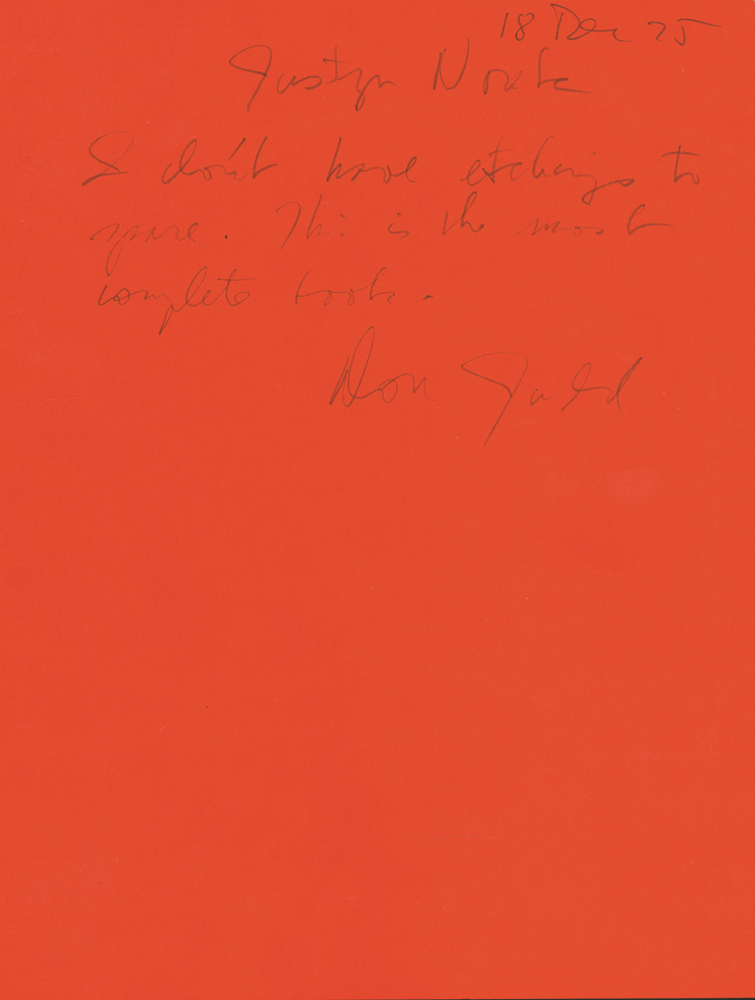 18 Dec 75
Justyn
I don't have etchings to
spare. This is the most
complete book.
Don Judd